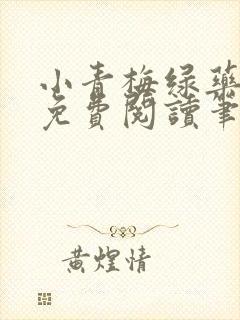 小青梅绿药
免費閱讀筆
黄煌情